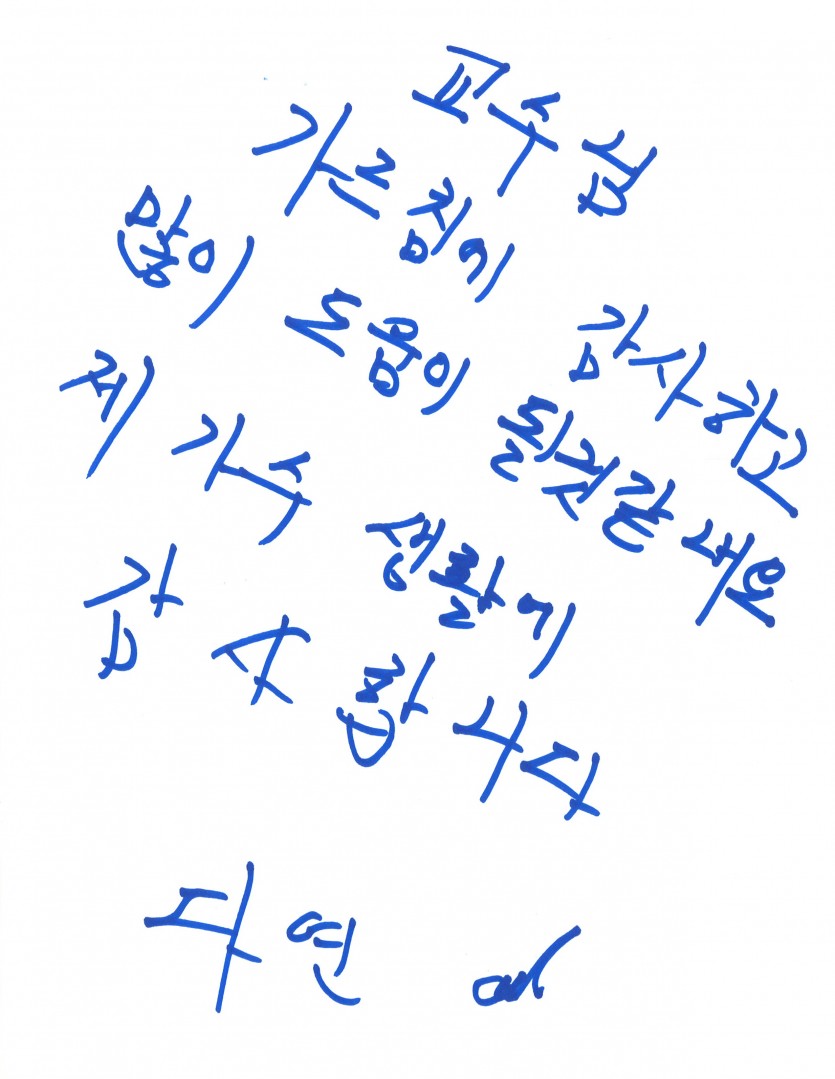 교수님
가르침에 감사하고
많이 도움이 될것같내요
제 가수 생활에
감사합니다
다연